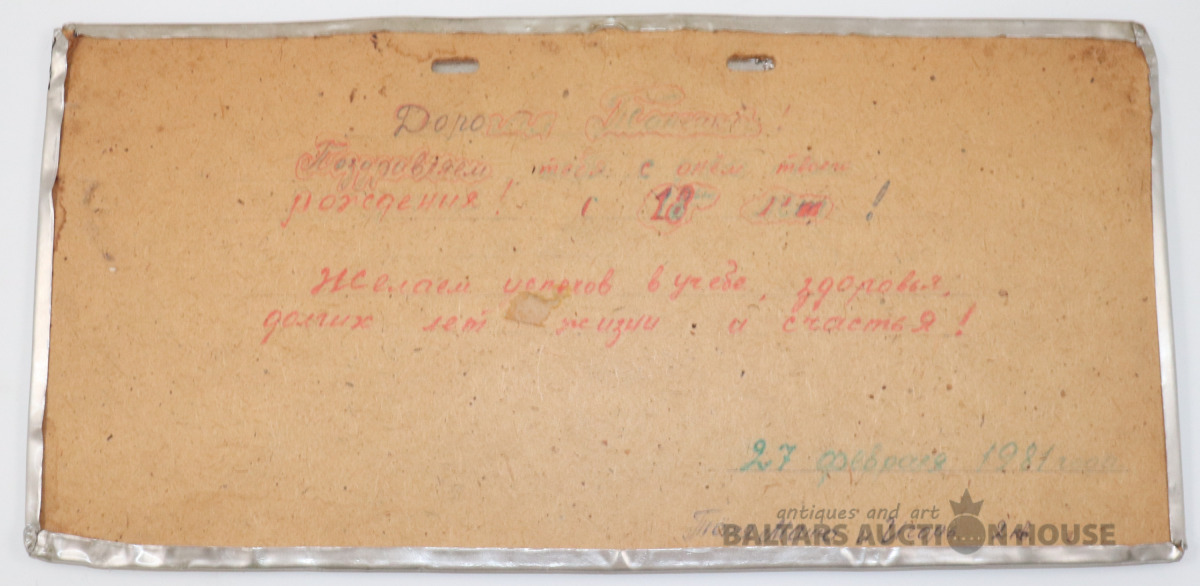 Дорогая
Поздравляем тебя с днём твоего
рождения! с 18 лет!
Желаем успехов в учебе, здоровья,
долгих лет жизни и счастья!
27 февраля 1981 года
antiques and art
BALTARS AUCTION HOUSE